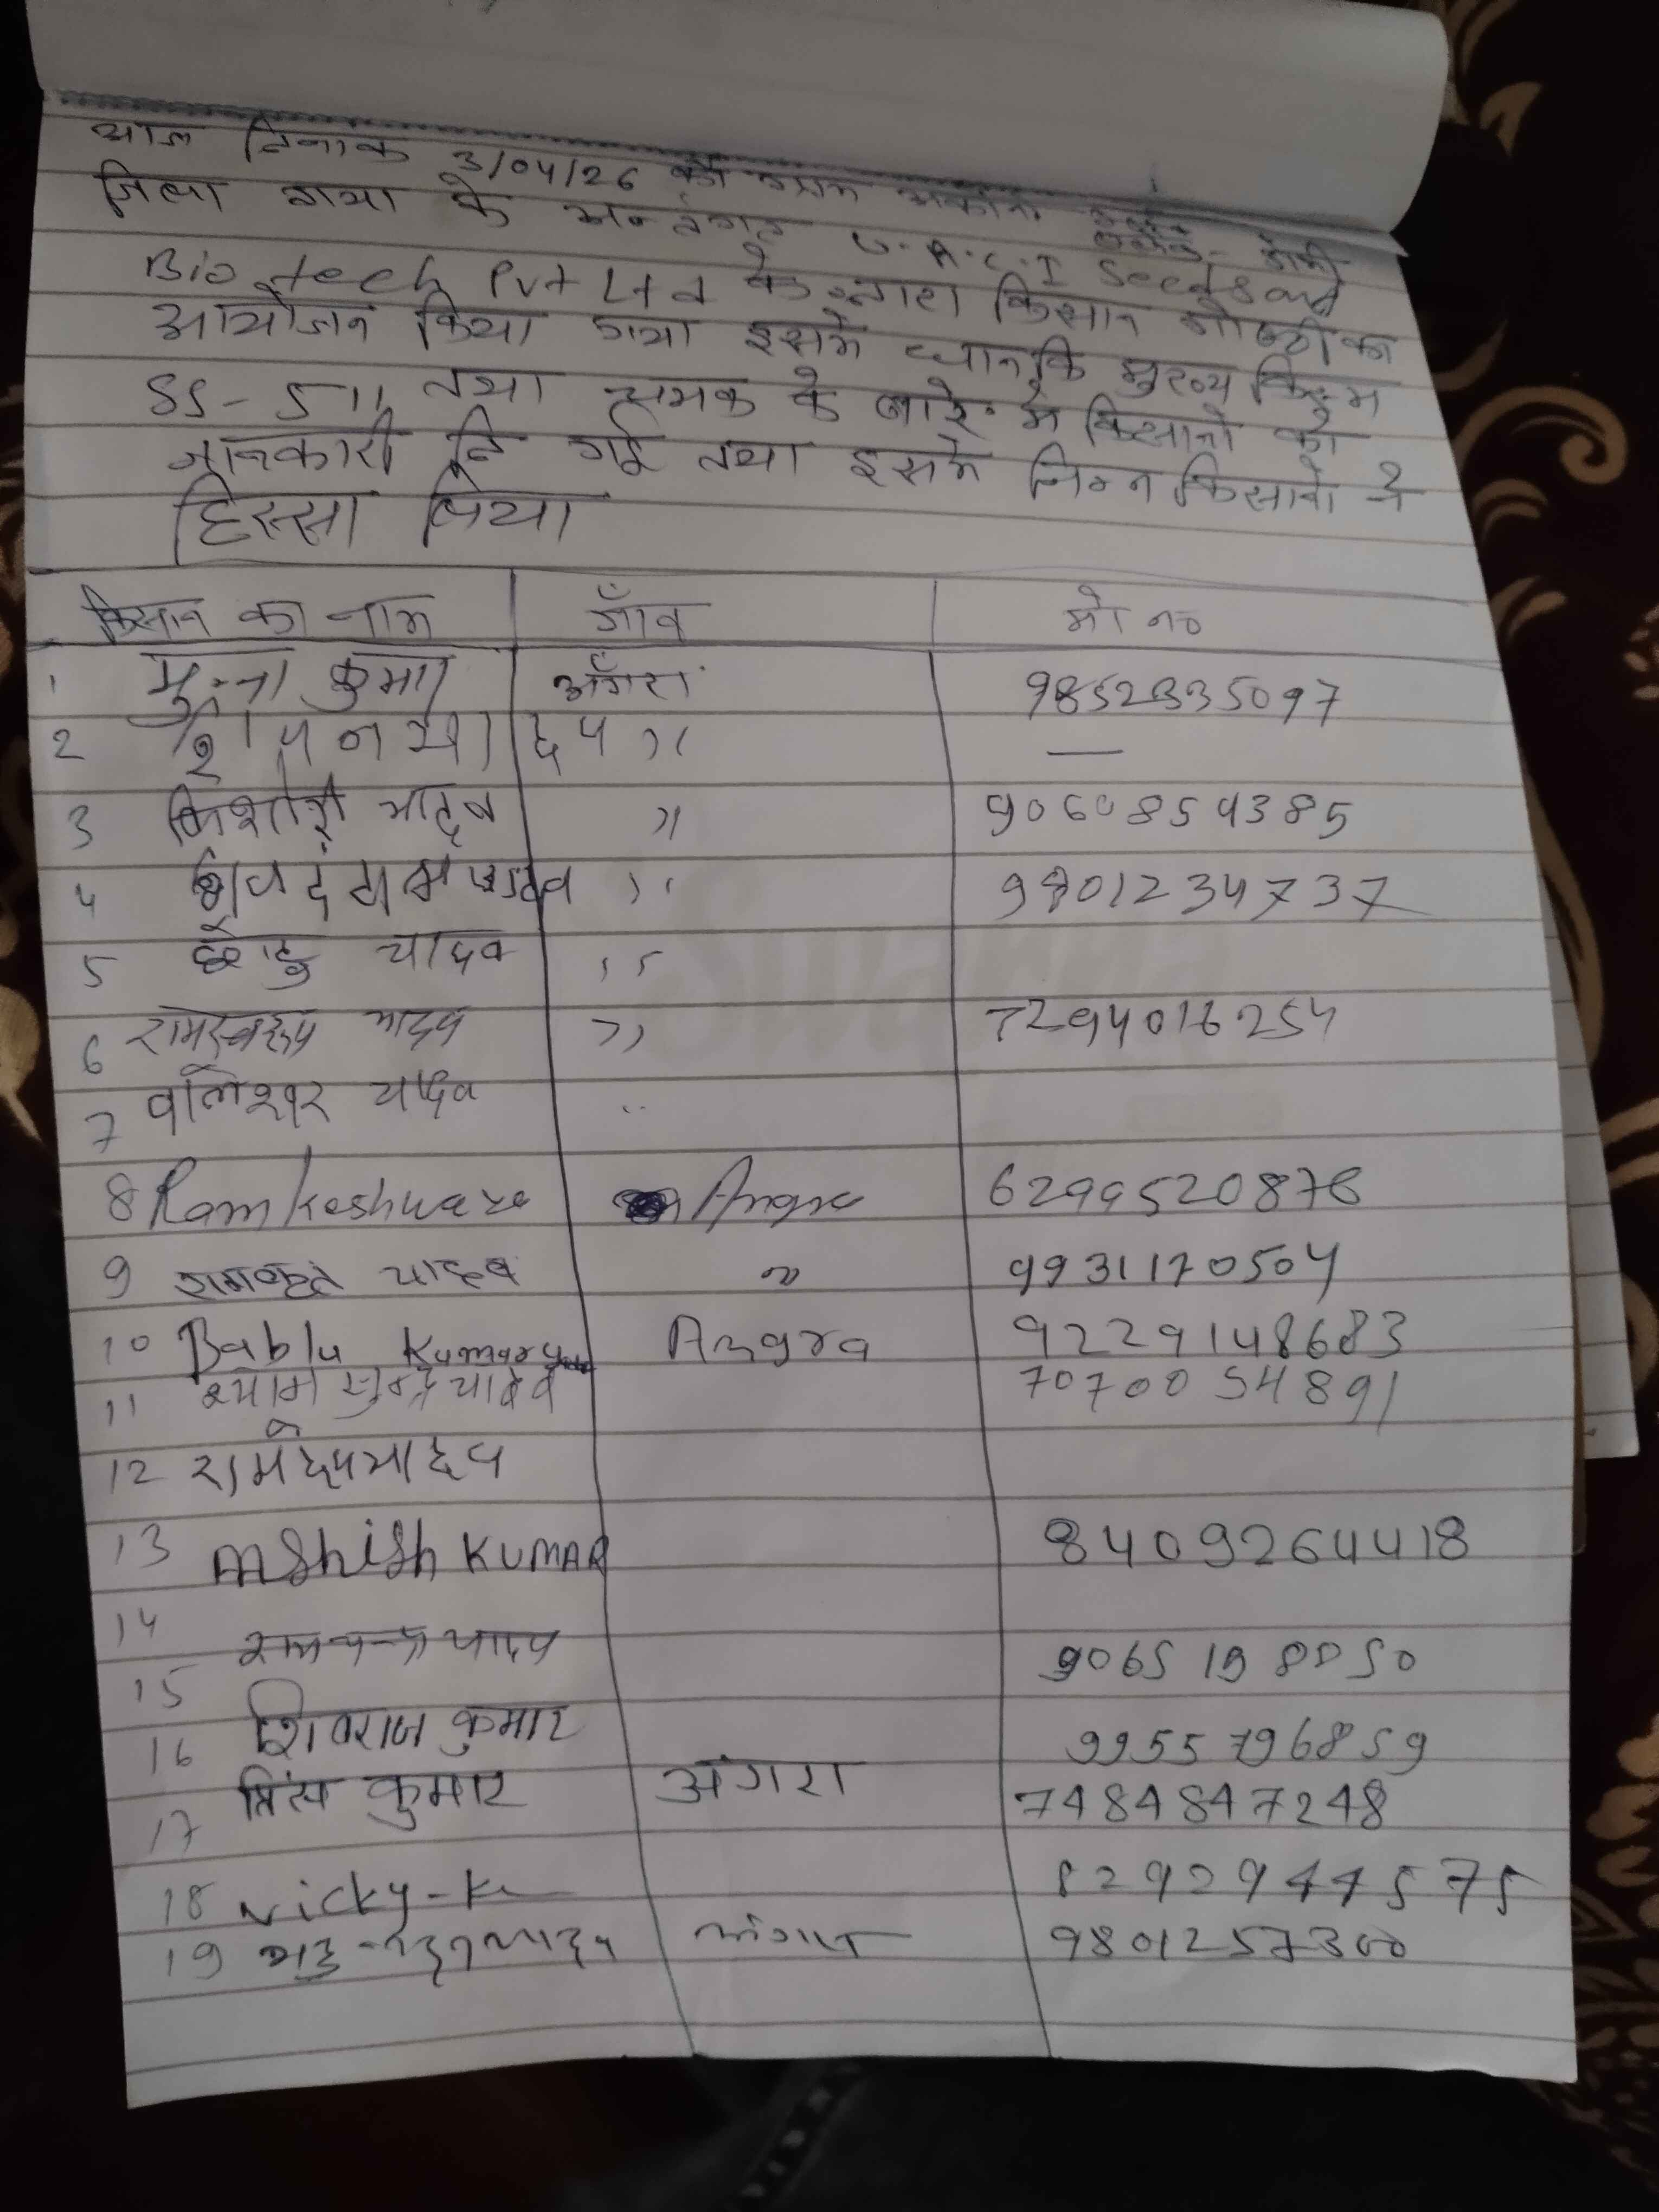 आज दिनांक 3/04/26 को ग्राम
जिला गया के अन्तर्गत U.A.C.I Seeds and
Bio tech Pvt Ltd के द्वारा किसान गोष्ठी का
आयोजन किया गया इसमे धान कि मुख्य किस्म
SS-511 तथा के बारे मे किसानो को
जानकारी दि गई तथा इसमे निम्न किसानो ने
हिस्सा लिया
किसान का नाम गाँव मो न०
1 मुन्ना कुमार अँगरा 9852335097
2 〃 —
3 किशोरी यादव 〃 9060854385
4 〃 9801234737
5 यादव 〃
6 रामस्वरूप यादव 〃 7294016254
7 बालेश्वर यादव 〃
8 Ramkeshwara Angra 6299520878
9 यादव 〃 9931170504
10 Bablu Kumar Angra 9229148683
11 श्याम सुन्द्र यादव 7070054891
12 रामदेव यादव
13 AShiSh KUMAR 8409264418
14
15 यादव 9065198050
16 शिवराज कुमार 9955796859
17 प्रिंस कुमार अंगरा 7484847248
18 Nicky-K 8292944575
19 9801257300